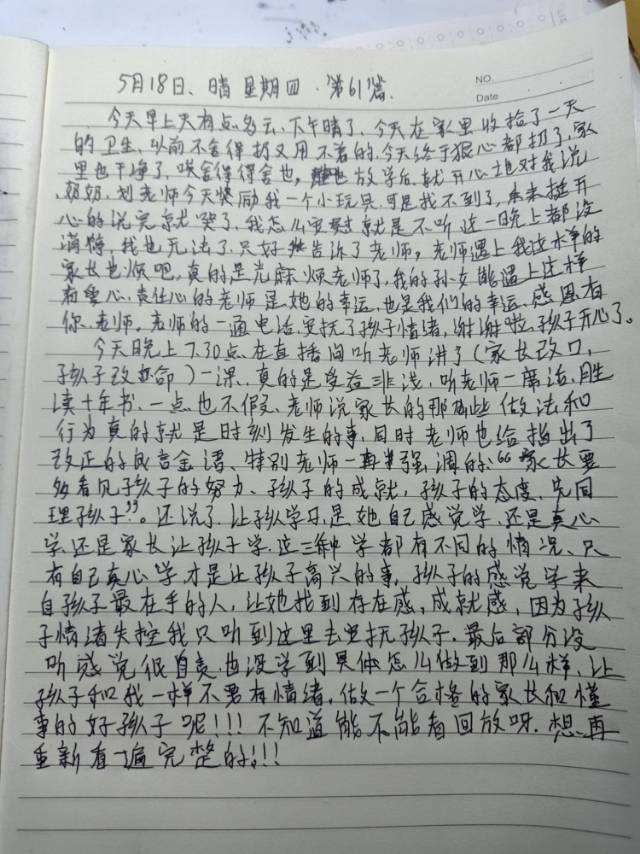 NO.
Date
5月18日、晴 星期四·第61篇.
今天早上天有点多云、下午晴了、今天在家里收拾了一天
的卫生、以前不舍得扔又用不着的、今天终于狠心都扔了、家
里也干净了、唉舍得得舍也, 放学后就开心地对我说
奶奶、刘老师今天奖励我一个小玩具、可是找不到了、本来挺开
心的说完就哭了、我怎么安慰就是不听这一晚上都没
消停、我也无法了、只好告诉了老师, 老师遇上我这样的
家长也烦吧, 真的是光麻烦老师了、我的孙女能遇上这样
有爱心、责任心的老师是她的幸运、也是我们的幸运、感恩有
你、老师, 老师的一通电话、安抚了孩子情绪、谢谢啦、孩子开心了。
今天晚上7.30点、在直播间听老师讲了(家长改口,
孩子改命)一课、真的是受益非浅, 听老师一席话、胜
读十年书、一点也不假、老师说家长的那些做法和
行为真的就是时刻发生的事、同时老师也给指出了
改正的良言金语、特别老师一再强调的、“家长要
多看见孩子的努力、孩子的成就, 孩子的态度、先同
理孩子”。还说了、让孩学习、是她自己感觉学、还是真心
学、还是家长让孩子学、这三种学都有不同的情况、只
有自己真心学、才是让孩子高兴的事, 孩子的感觉学来
自孩子最在乎的人, 让她找到存在感, 成就感, 因为孩
子情绪失控我只听到这里去安抚孩子. 最后部分没
听感觉很自责、也没学到具体怎么做到那么样、让
孩子和我一样不要有情绪, 做一个合格的家长和懂
事的好孩子呢!!! 不知道能不能看回放呀. 想再
重新看一遍完整的!!!